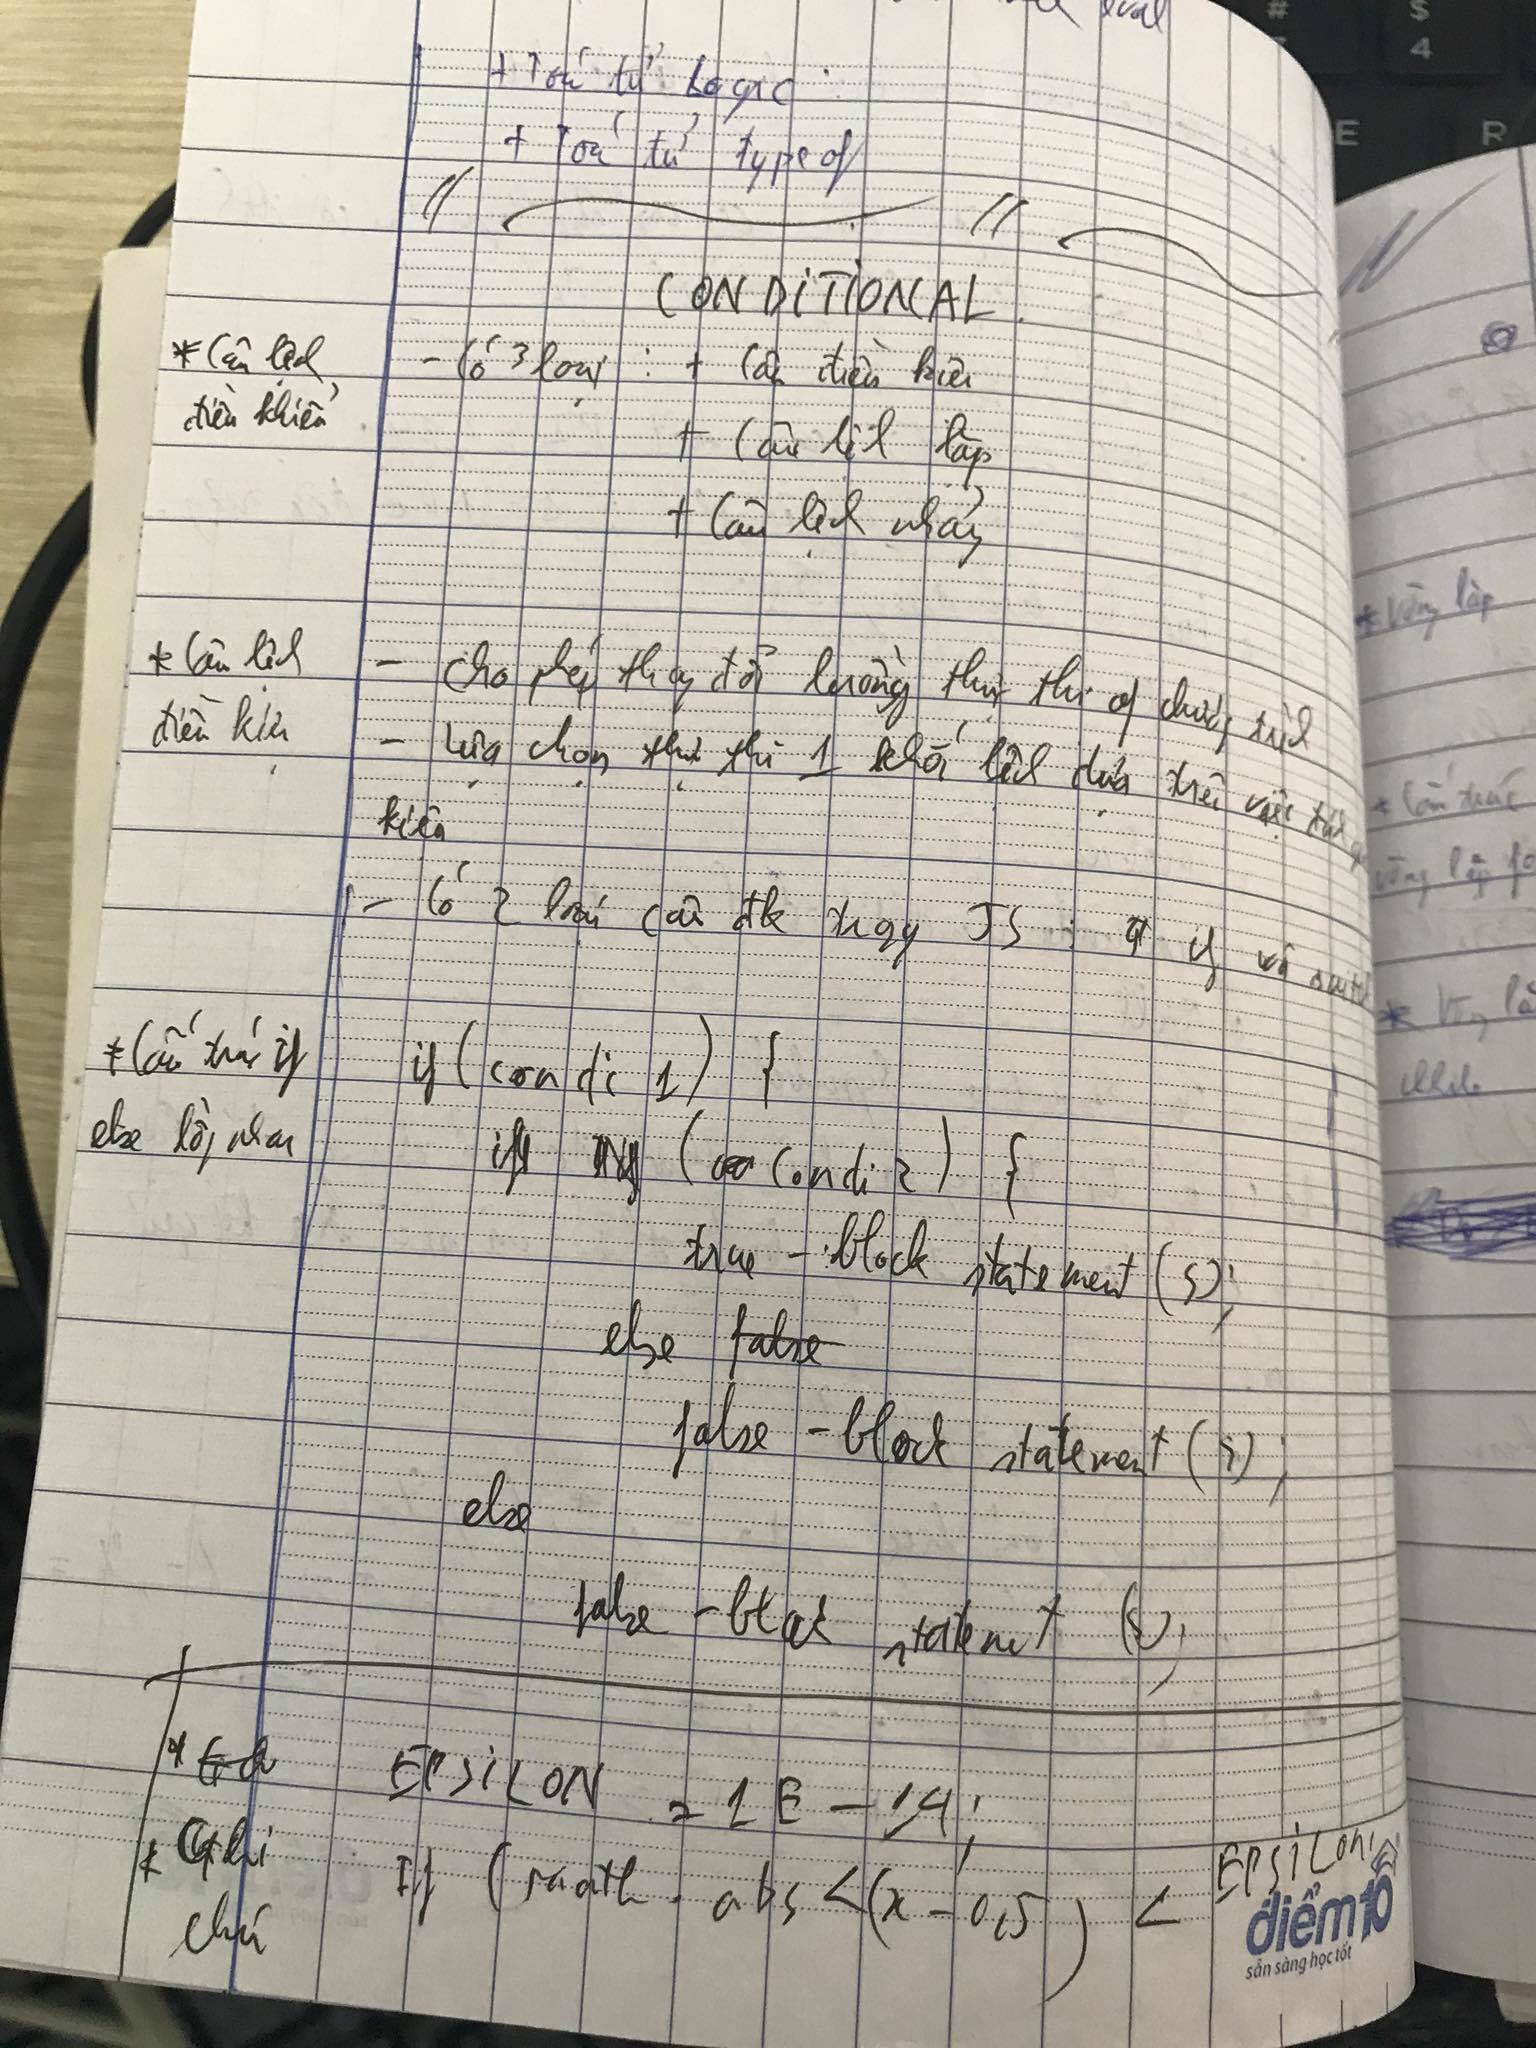 + Toán tử Logic :
+ Toán tử typeof
CONDITIONAL.
* Câu lệnh
điều khiển
- Có 3 loại : + Câu điều kiện
+ Câu lệnh lặp
+ Câu lệnh nhảy
* Câu lệnh
điều kiện
- cho phép thay đổi luồng thực thi of chương trình
- Lựa chọn thực thi 1 khối lệnh dựa trên việc
kiện
- Có 2 loại câu đk trong JS : if và switch
* Cấu trúc if
else lồng nhau
if (condi 1) {
if (condi 2) {
true - block statement (s);
else false
false - block statement (s);
else
false - block statement (s);
* Ghi
chú
EPSILON = 1E - 14;
If (math . abs < (x - 0,5) < EPSILON)
điểm 10
sẵn sàng học tốt
* Vòng lặp
* Cấu trúc
vòng lặp fo
* Vòng lặ
while
E R
# $
4